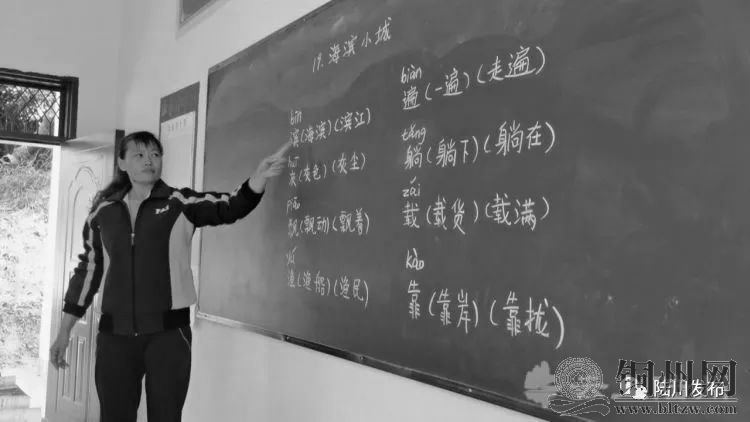 19.海滨小城
bīn
滨(海滨)(滨江)
huī
灰(灰色)(灰尘)
piāo
飘(飘动)(飘着)
yú
渔(渔船)(渔民)
biàn
遍(一遍)(走遍)
tǎng
躺(躺下)(躺在)
zài
载(载货)(载满)
kào
靠(靠岸)(靠拢)
铜州网
陆川发布
www.bltzw.com